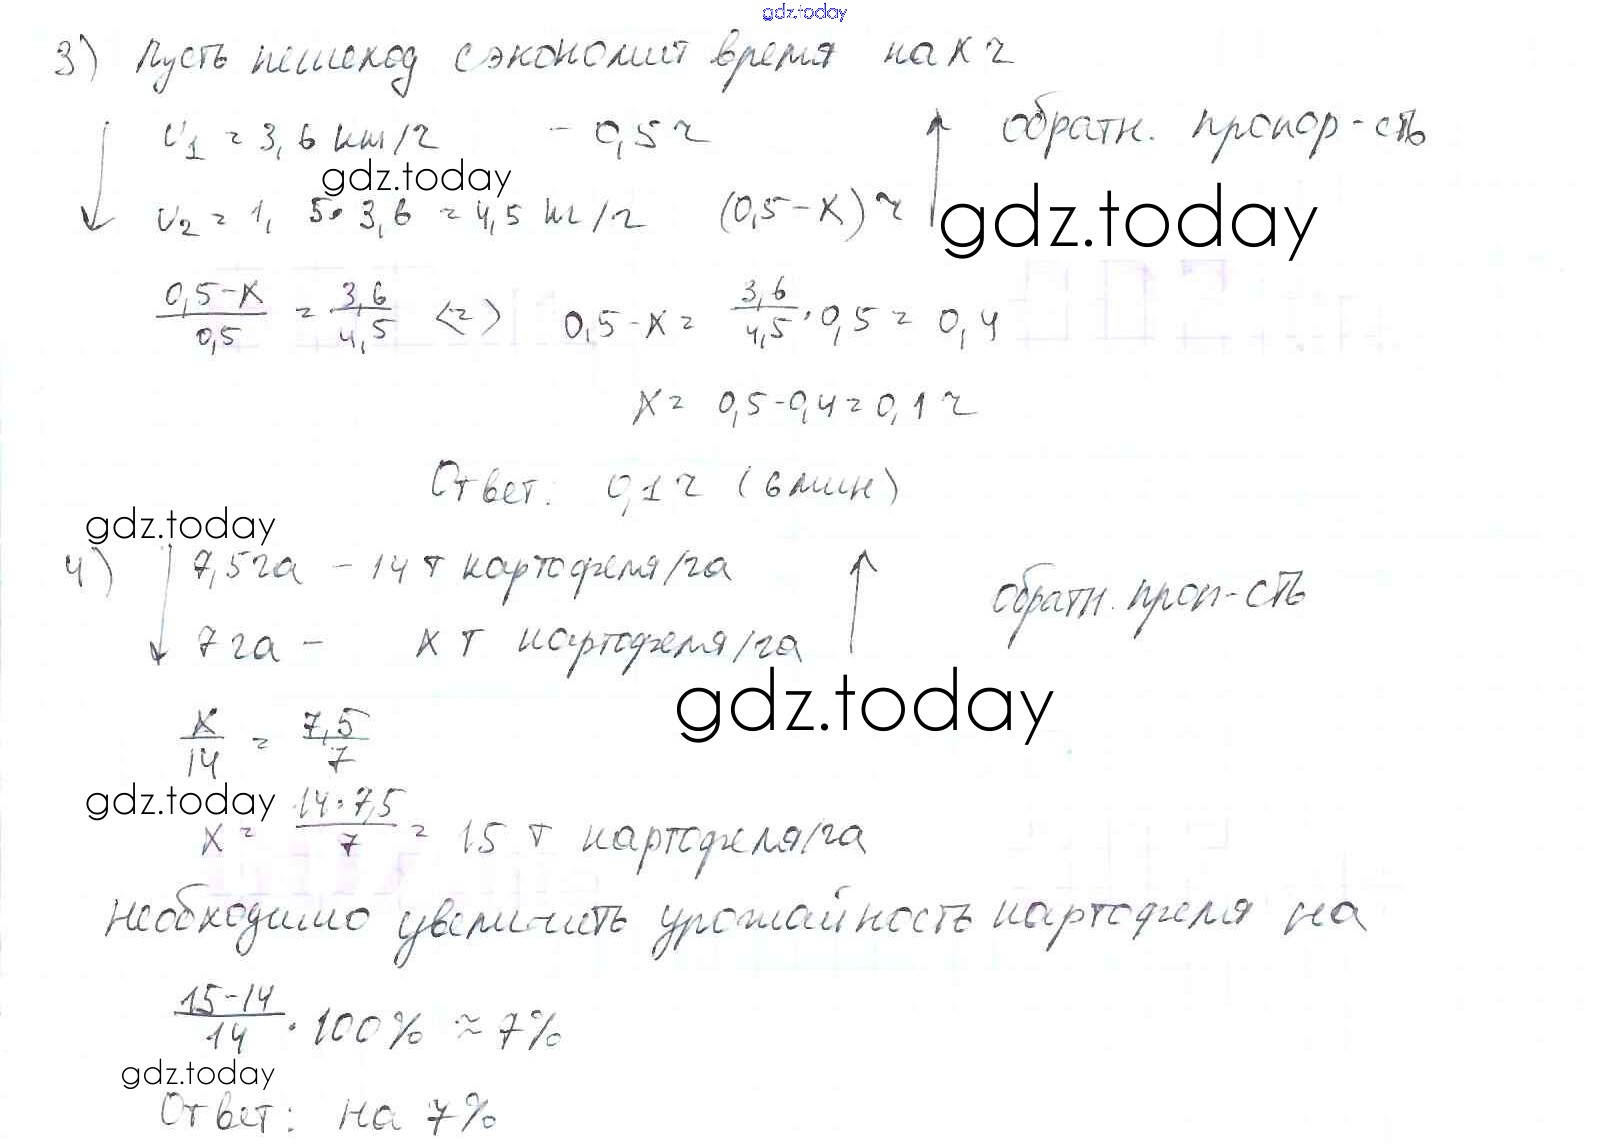 gdz.today
3) Пусть пешеход сэкономит время на x ч
v₁ = 3,6 км/ч - 0,5 ч обратн. пропор-сть
gdz.today
v₂ = 1, 5 · 3,6 = 4,5 км/ч (0,5-x) ч
gdz.today
(0,5-x)/0,5 = 3,6/4,5 <=> 0,5-x = 3,6/4,5 · 0,5 = 0,4
x = 0,5-0,4 = 0,1 ч
Ответ: 0,1 ч (6 мин)
gdz.today
4) 7,5 га - 14 т картофеля/га обратн. проп-сть
7 га - x т картофеля/га
gdz.today
x/14 = 7,5/7
gdz.today
x = (14·7,5)/7 = 15 т картофеля/га
необходимо увеличить урожайность картофеля на
(15-14)/14 · 100% ≈ 7%
gdz.today
Ответ: на 7%